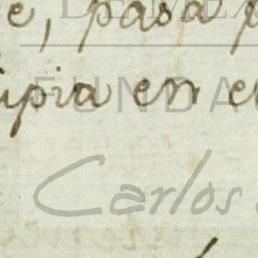 e, pasa
FUNDA
upia en e
Carlos